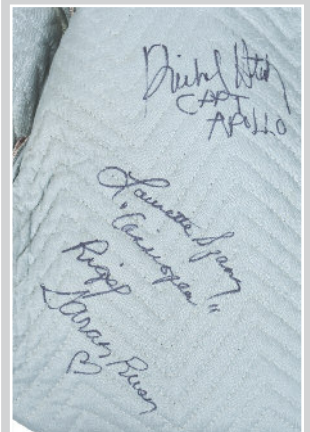 Richard Hatch
CAPT
APOLLO
Laurette Spang
"Cassiopea"
Rigel
Sarah Rush